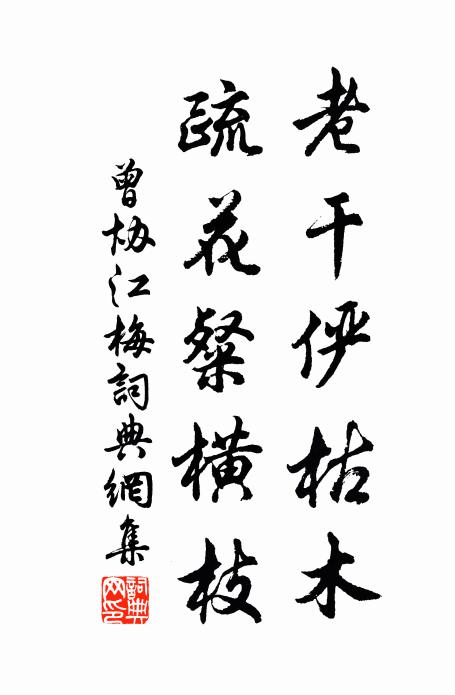 老干俨枯木
疏花粲横枝
曾协江梅詞典網集
詞典网印